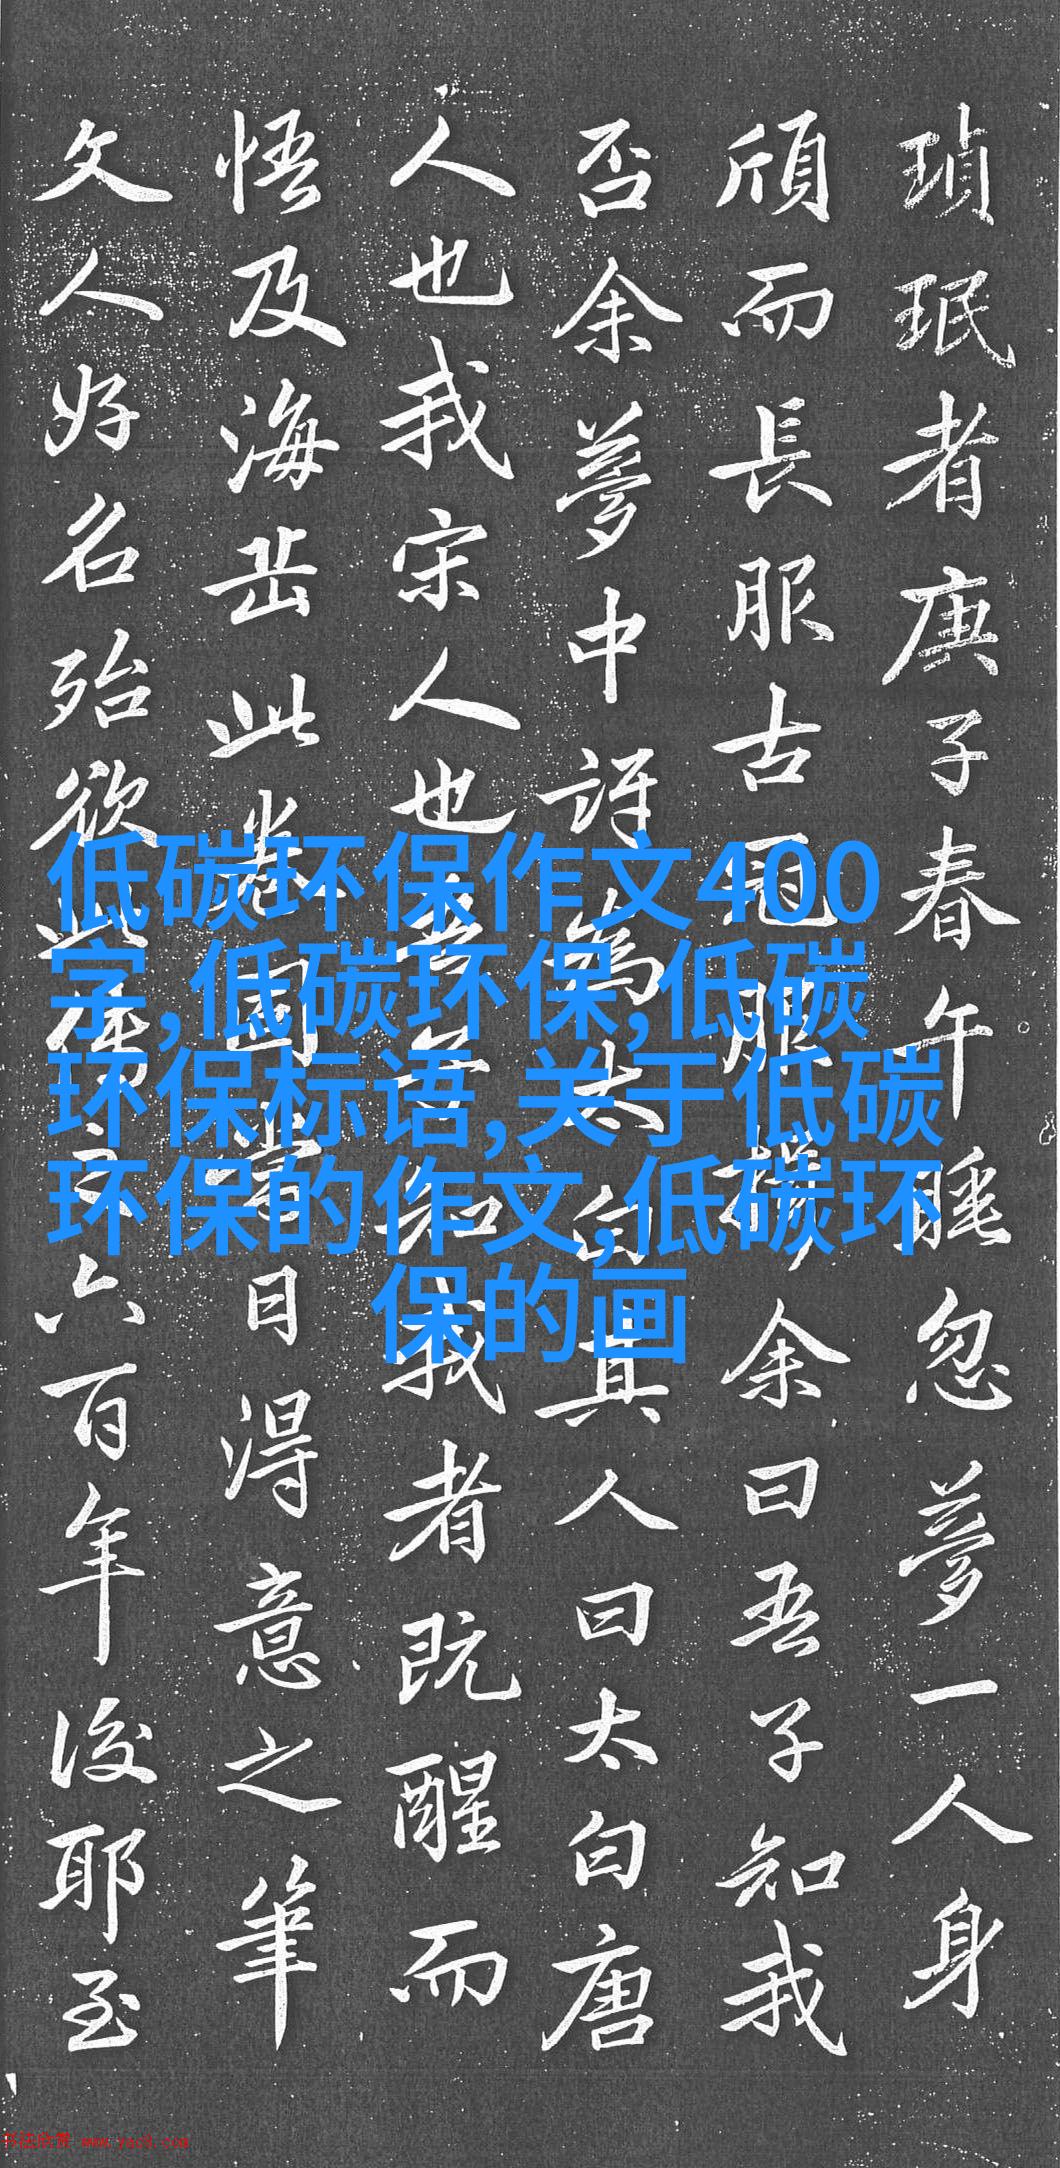 瑱珉者庚子春午睡忽夢一人身
頎而長服古冠服揖余曰吾子知我
否余夢中訝為太白真人曰太白唐
人也我宋人也吾知我者既醒而
悟及海岳此卷圖當日得意之筆
文人好名殆欲此傳六百年後耶至
低碳环保作文400
字,低碳环保,低碳
环保标语,关于低碳
环保的作文,低碳环
保的画
书法欣赏 www.yac8.com